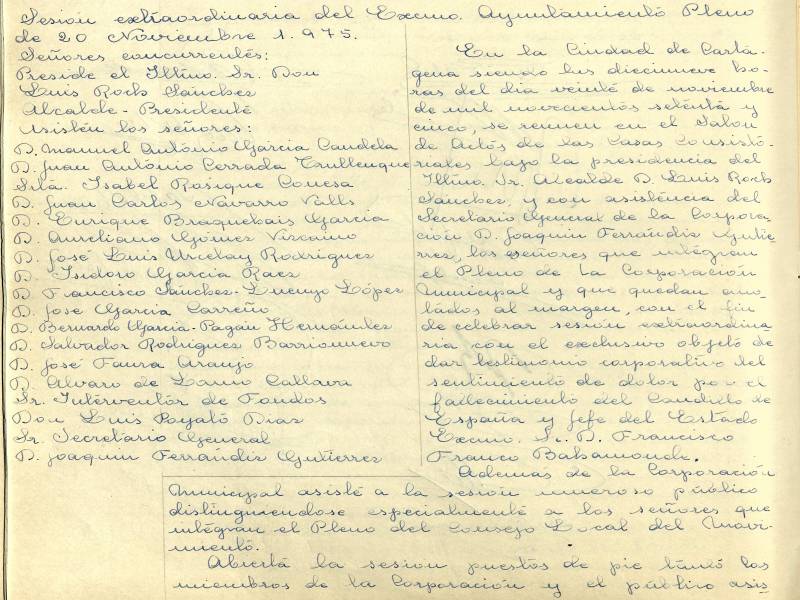 Sesion extraordinaria del Excmo. Ayuntamiento Pleno
de 20 Noviembre 1.975.
Señores concurrentes:
Preside el Iltmo. Sr. Don
Luis Roch Sánchez
Alcalde-Presidente
Asisten los señores:
D. Manuel Antonio Garcia Candela
D. Juan Antonio Cerrada Trullenque
Srta. Isabel Rasique Conesa
D. Juan Carlos Navarro Valls
D. Enrique Braquehais Garcia
D. Aureliano Gómez Vizcaino
D. José Luis Urcelay Rodriguez
D. Isidoro Garcia Raez
D. Francisco Sánchez-Luengo López
D. José Garcia Carreño
D. Bernardo Garcia-Pagán Hernández
D. Salvador Rodriguez Barrionuevo
D. José Faura Araujo
D. Alvaro de Lamo Callava
Sr. Interventor de Fondos
Don Luis Poyató Diaz
Sr. Secretario General
D. Joaquin Ferrándiz Gutierrez
En la Ciudad de Carta-
gena siendo las diecinueve ho-
ras del dia veinte de noviembre
de mil novecientos setenta y
cinco, se reunen en el Salon
de Actos de las Casas Consisto-
riales bajo la presidencia del
Iltmo. Sr. Alcalde D. Luis Roch
Sánchez, y con asistencia del
Secretario General de la Corpora-
ción D. Joaquin Ferrándiz Gutié-
rrez, los señores que integran
el Pleno de la Corporación
Municipal y que quedan ano-
tados al margen, con el fin
de celebrar sesión extraordina
ria con el exclusivo objeto de
dar testimonio corporativo del
sentimiento de dolor por el
fallecimiento del Caudillo de
España y Jefe del Estado
Excmo. Sr. D. Francisco
Franco Bahamonde.
Además de la Corporación
Municipal asiste a la sesion numeroso público
distinguiendose especialmente a los señores que
integran el Pleno del Consejo Local del Movi-
miento.
Abierta la sesion puestos de pie tanto los
miembros de la Corporación y el público asis